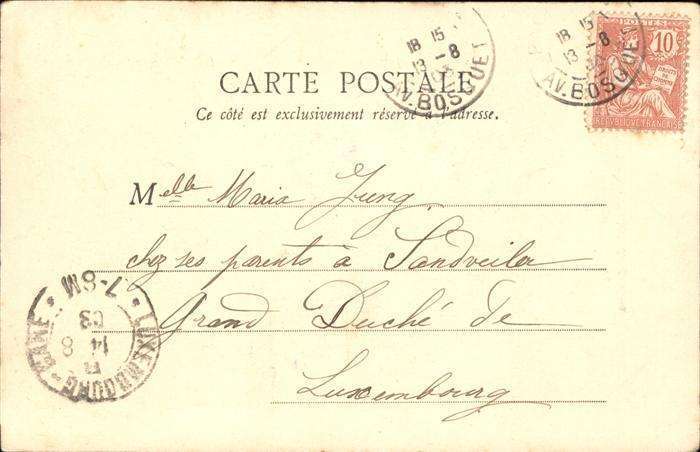 CARTE POSTALE
Ce côté est exclusivement réservé à l'adresse.
18 15
13 - 8
03
AV. BOSQUET
18 15
13 - 8
AV. BOSQUET
POSTES
10
DROITS DE L'HOMME
REPUBLIQUE FRANÇAISE
Melle Maria Jung
chez ses parents à Sandweiler
Grand Duché de
Luxembourg
LUXEMBOURG-GARE
14 8
03
7-8M